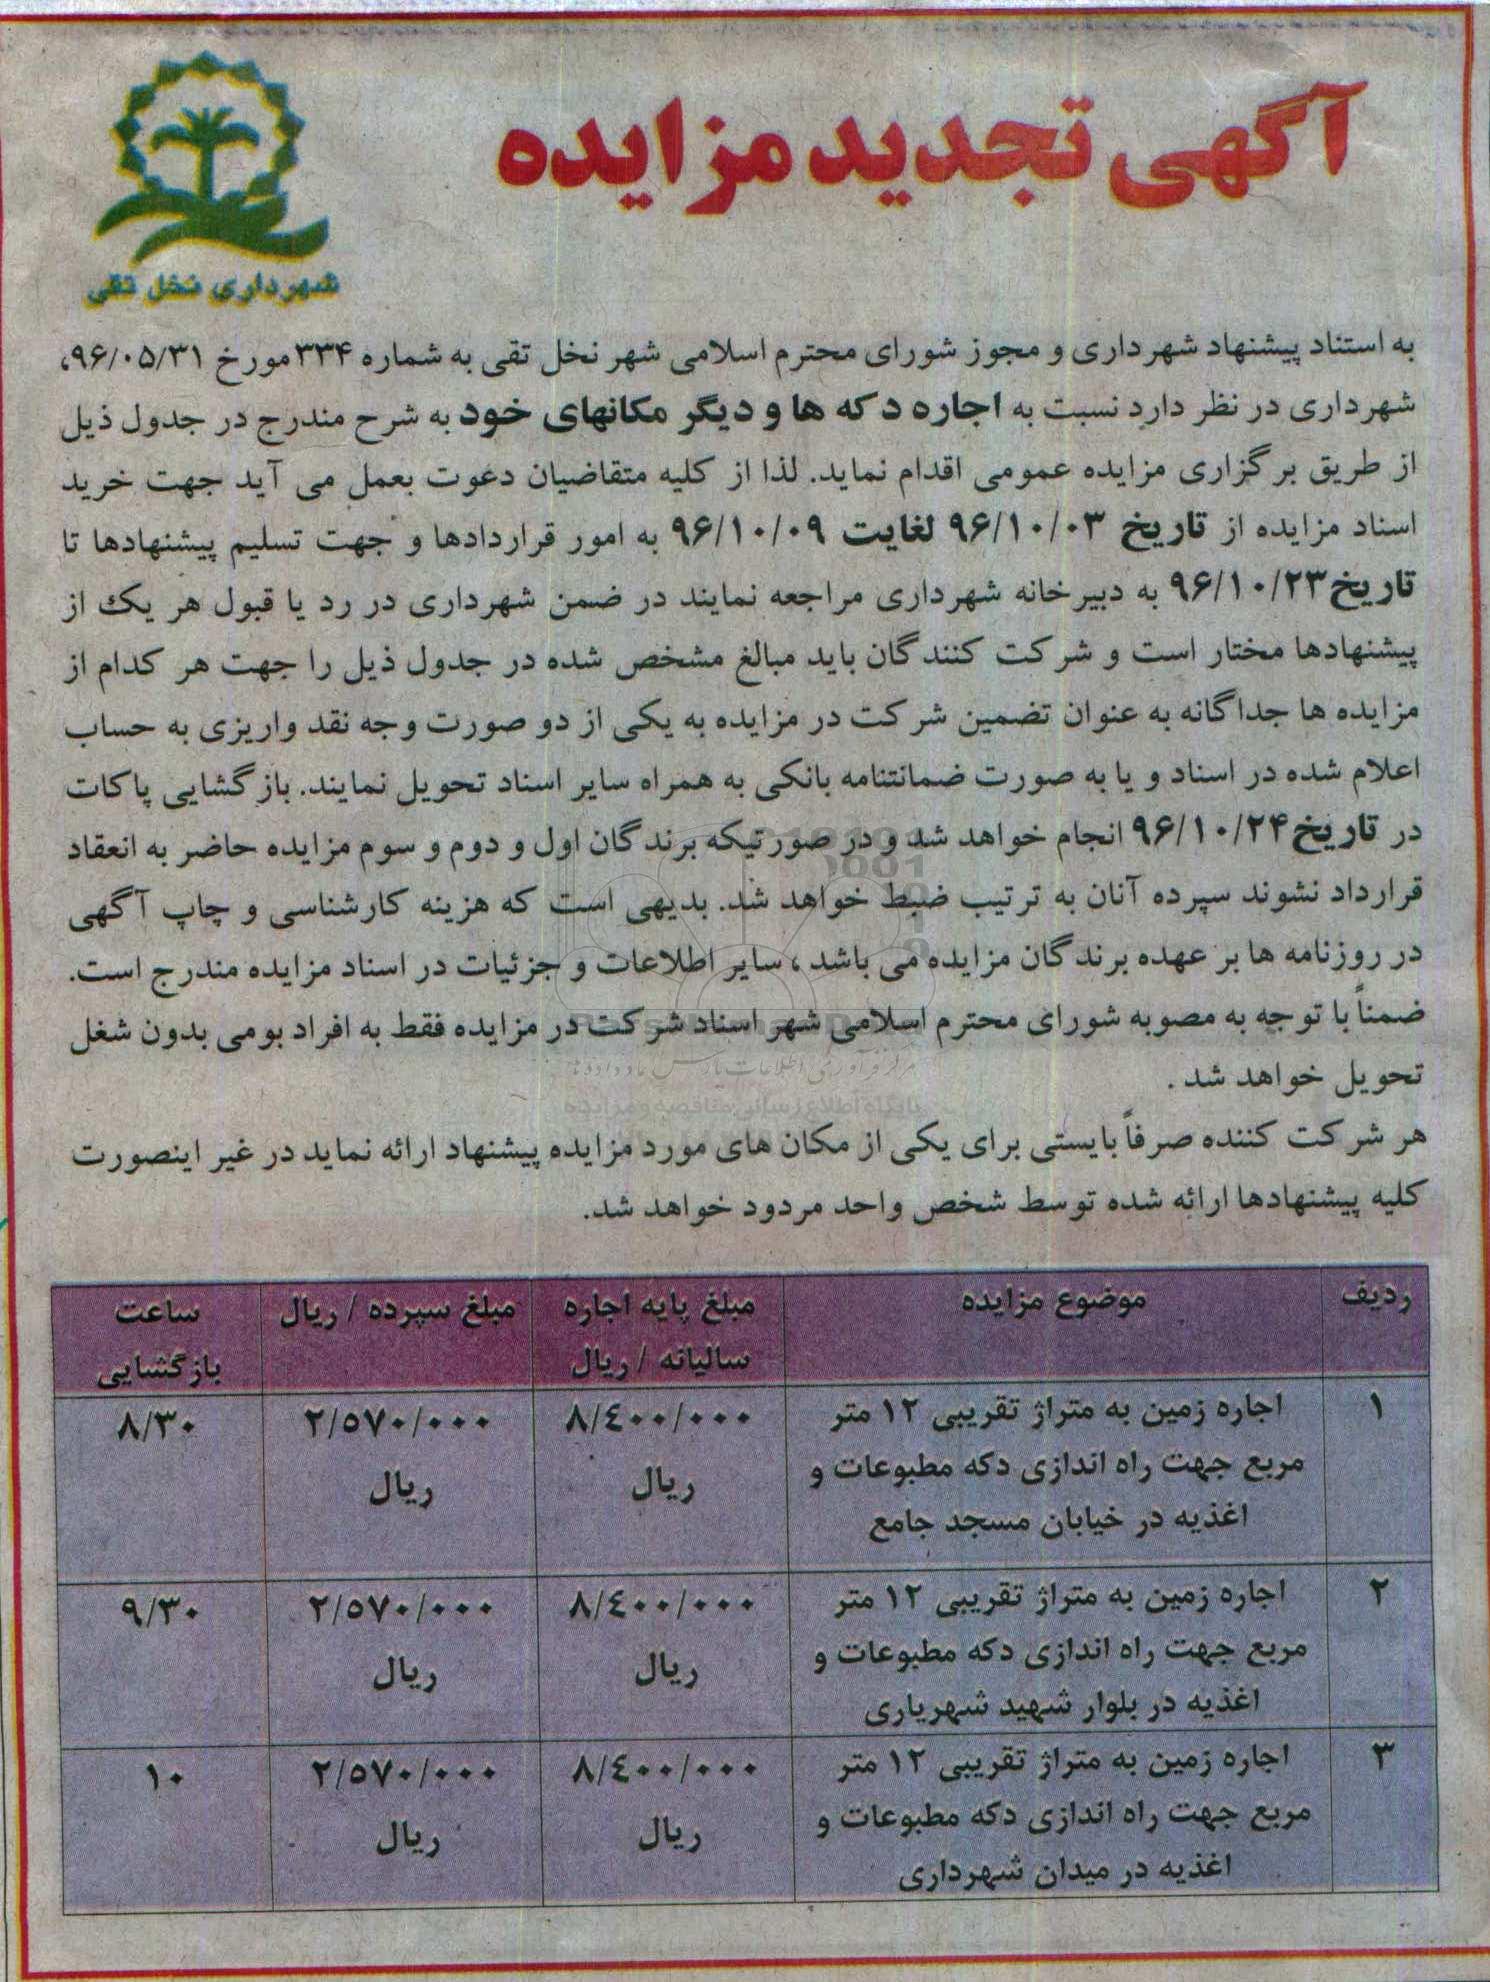 آگهی تجدید مزایده
شهرداری نخل تقی
به استناد پیشنهاد شهرداری و مجوز شورای محترم اسلامی شهر نخل تقی به شماره ۳۳۴ مورخ ۹۶/۰۵/۳۱،
شهرداری در نظر دارد نسبت به اجاره دکه ها و دیگر مکانهای خود به شرح مندرج در جدول ذیل
از طریق برگزاری مزایده عمومی اقدام نماید. لذا از کلیه متقاضیان دعوت بعمل می آید جهت خرید
اسناد مزایده از تاریخ ۹۶/۱۰/۰۳ لغایت ۹۶/۱۰/۰۹ به امور قراردادها و جهت تسلیم پیشنهادها تا
تاریخ ۹۶/۱۰/۲۳ به دبیرخانه شهرداری مراجعه نمایند در ضمن شهرداری در رد یا قبول هر یک از
پیشنهادها مختار است و شرکت کنندگان باید مبالغ مشخص شده در جدول ذیل را جهت هر کدام از
مزایده ها جداگانه به عنوان تضمین شرکت در مزایده به یکی از دو صورت وجه نقد واریزی به حساب
اعلام شده در اسناد و یا به صورت ضمانتنامه بانکی به همراه سایر اسناد تحویل نمایند. بازگشایی پاکات
در تاریخ ۹۶/۱۰/۲۴ انجام خواهد شد و در صورتیکه برندگان اول و دوم و سوم مزایده حاضر به انعقاد
قرارداد نشوند سپرده آنان به ترتیب ضبط خواهد شد. بدیهی است که هزینه کارشناسی و چاپ آگهی
در روزنامه ها بر عهده برندگان مزایده می باشد، سایر اطلاعات و جزئیات در اسناد مزایده مندرج است.
ضمناً با توجه به مصوبه شورای محترم اسلامی شهر اسناد شرکت در مزایده فقط به افراد بومی بدون شغل
تحویل خواهد شد .
هر شرکت کننده صرفاً بایستی برای یکی از مکان های مورد مزایده پیشنهاد ارائه نماید در غیر اینصورت
کلیه پیشنهادها ارائه شده توسط شخص واحد مردود خواهد شد.
ردیف موضوع مزایده مبلغ پایه اجاره مبلغ سپرده / ریال ساعت
سالیانه / ریال بازگشایی
۱ اجاره زمین به متراژ تقریبی ۱۲ متر ۸/٤۰۰/۰۰۰ ۲/۵۷۰/۰۰۰ ۸/۳۰
مربع جهت راه اندازی دکه مطبوعات و ریال ریال
اغذیه در خیابان مسجد جامع
۲ اجاره زمین به متراژ تقریبی ۱۲ متر ۸/٤۰۰/۰۰۰ ۲/۵۷۰/۰۰۰ ۹/۳۰
مربع جهت راه اندازی دکه مطبوعات و ریال ریال
اغذیه در بلوار شهید شهریاری
۳ اجاره زمین به متراژ تقریبی ۱۲ متر ۸/٤۰۰/۰۰۰ ۲/۵۷۰/۰۰۰ ۱۰
مربع جهت راه اندازی دکه مطبوعات و ریال ریال
اغذیه در میدان شهرداری